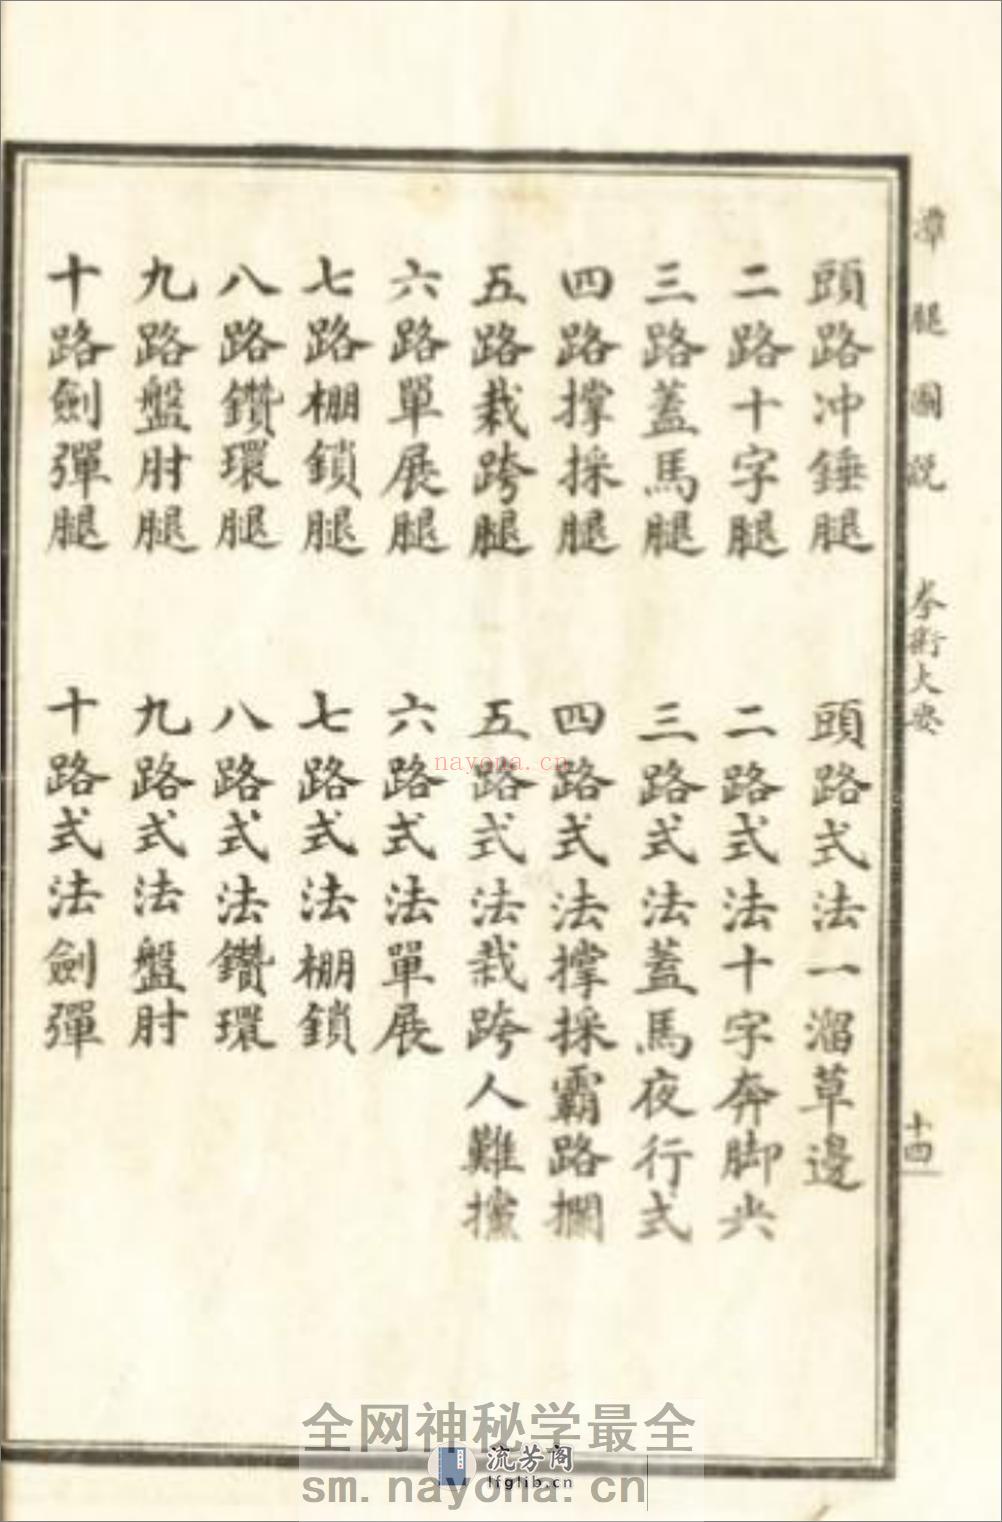 潭腿圖説 拳術大要 十四
頭路冲錘腿 頭路式法一溜草邊
二路十字腿 二路式法十字奔脚尖
三路蓋馬腿 三路式法蓋馬夜行式
四路撑採腿 四路式法撑採霸路攔
五路栽跨腿 五路式法栽跨人難攩
六路單展腿 六路式法單展
七路棚鎖腿 七路式法棚鎖
八路鑽環腿 八路式法鑽環
九路盤肘腿 九路式法盤肘
十路劍彈腿 十路式法劍彈
nayona.cn
全网神秘学最全
流芳阁
lfglib.cn
sm.nayona.cn